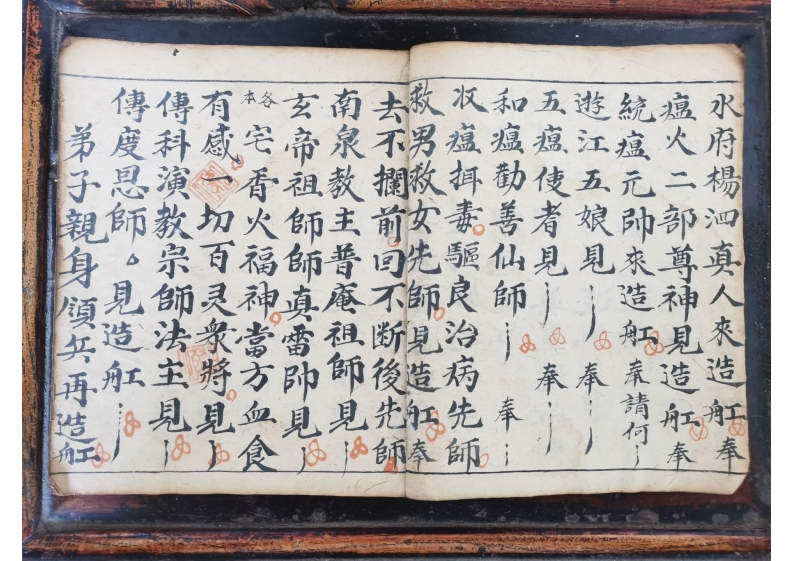 水府楊泗真人來造舡奉
瘟火二部尊神見造舡奉
統瘟元帥來造舡奉請何
遊江五娘見奉
五瘟使者見奉
和瘟勸善仙師奉
收瘟揖毒驅良治病先師
救男救女先師見造舡奉
去不攔前回不断後先師
南泉教主普庵祖師見
玄帝祖師師真雷帥見
各本宅香火福神當方血食
有感一切百灵衆將見
傳科演教宗師法主見
傳度恩師見造舡
弟子親身領兵再造舡